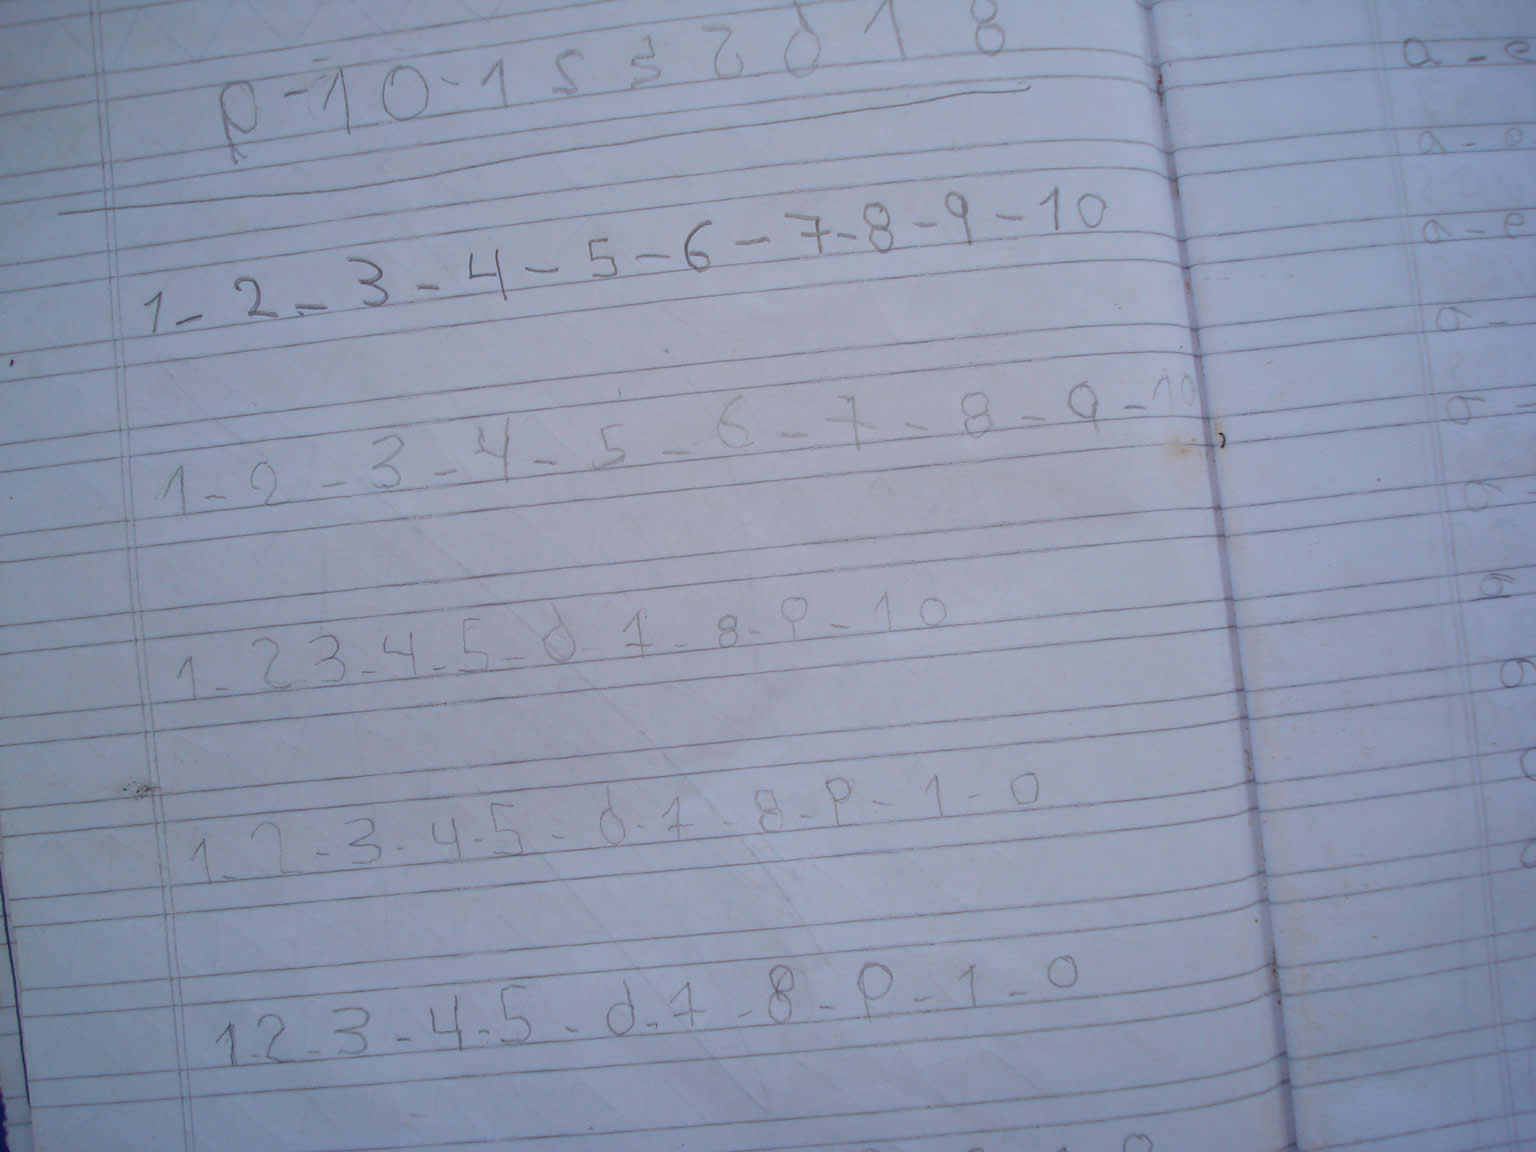 p-10-1 5 3 2 d 1 8
1-2-3-4-5-6-7-8-9-10
1-2-3-4-5-6-7-8-9-10
1-2 3-4-5-d 7-8-P-10
1 2-3-4-5-d-7-8-P-1-0
1 2-3-4-5-d-7-8-P-1-0
a-e
a-e
a-e
a-
a-
a-
a
a